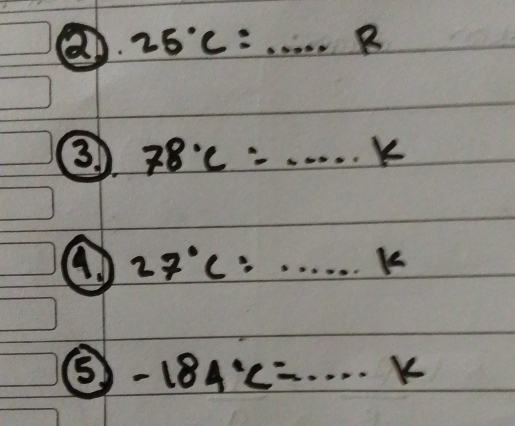 2). 25°C = ...... R
3). 78°C = ...... K
4.) 27°C = ....... K
5) -184°C = ..... K